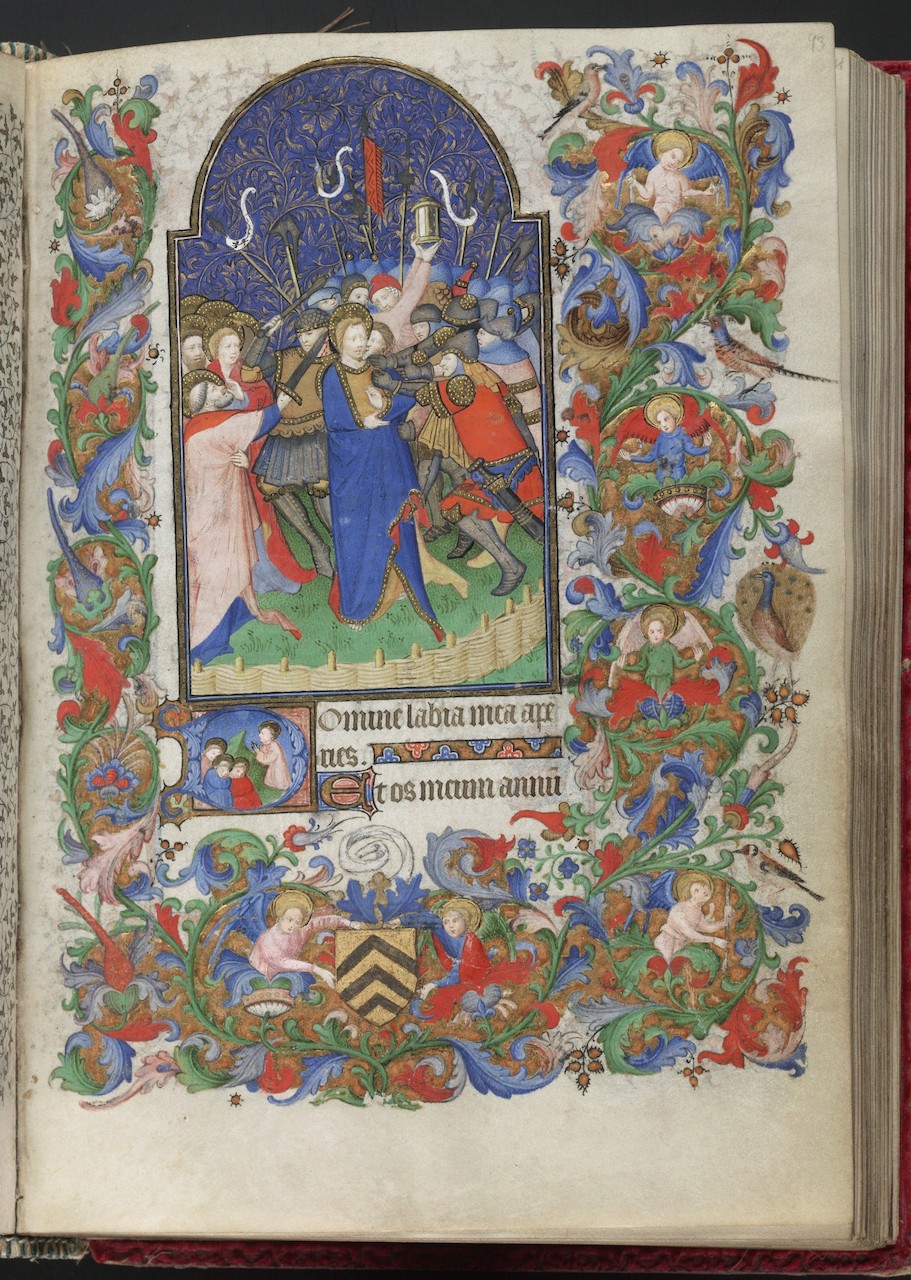 93
Domine labia mea ape
ries.
Et os meum annū